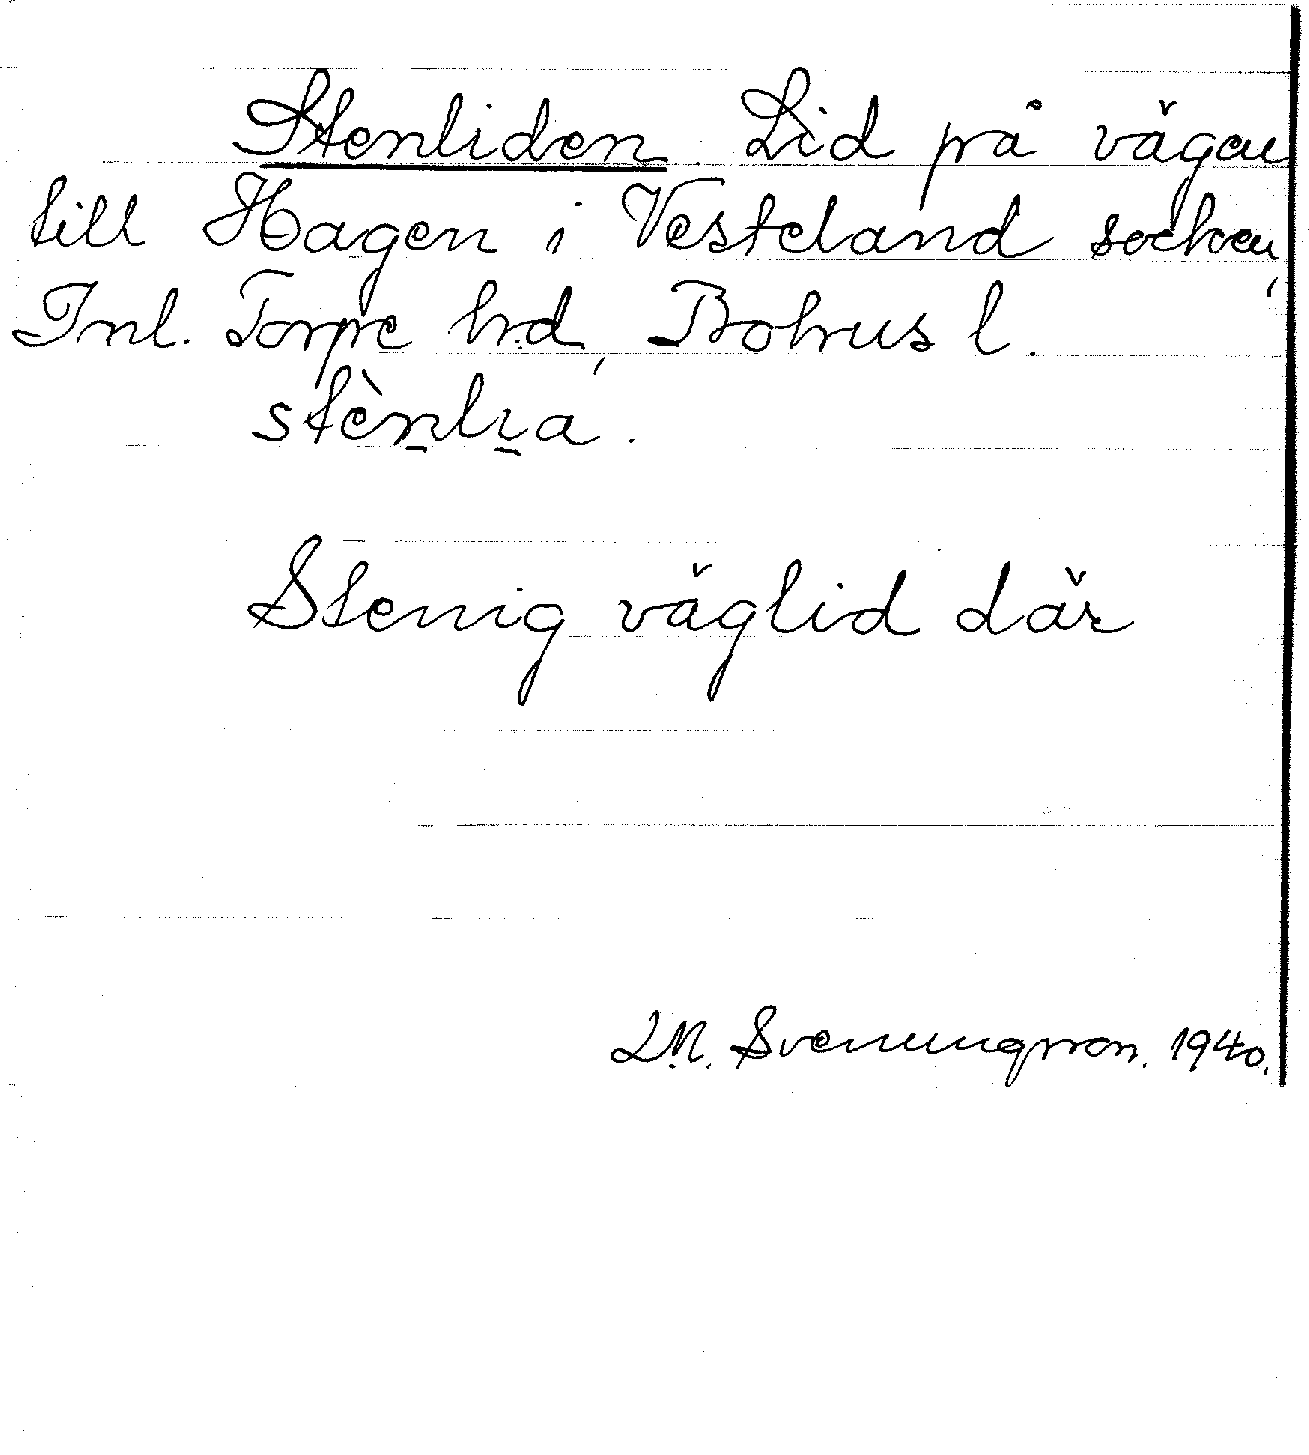 Stenliden Lid på vägen
till Hagen i Vesteland socken,
Inl. Torpe hd, Bohus l.
stènlıa.
Stenig väglid där
L.M. Svenungsson. 1940.